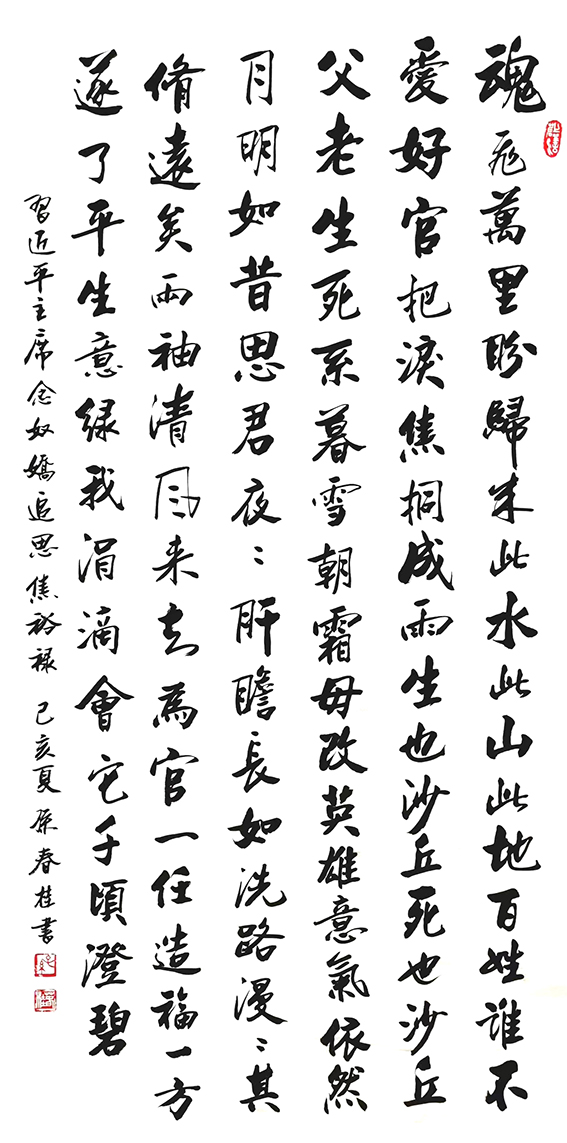 魂飛萬里盼歸来此水此山此地百姓誰不
愛好官把淚焦桐成雨生也沙丘死也沙丘
父老生死系暮雪朝霜毋改英雄意氣依然
月明如昔思君夜〻肝瞻長如洗路漫〻其
脩遠矣兩袖清风来去為官一任造福一方
遂了平生意绿我涓滴會它千頃澄碧
習近平主席念奴嬌追思焦裕禄 己亥夏原春桂書